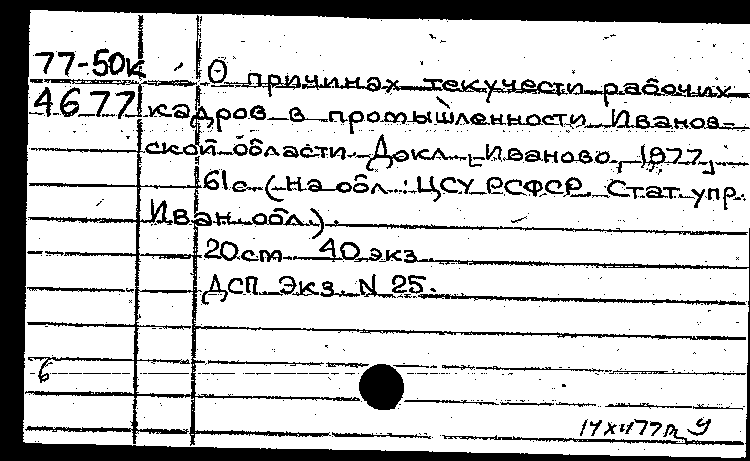 77-50к О причинах текучести рабочих
4677 кадров в промышленности Иванов-
ской области. Докл. [Иваново, 1977]
61с. (На обл.: ЦСУ РСФСР. Стат. упр.
Иван. обл.).
20cm 40 экз.
ДСП. Экз. N 25.
6